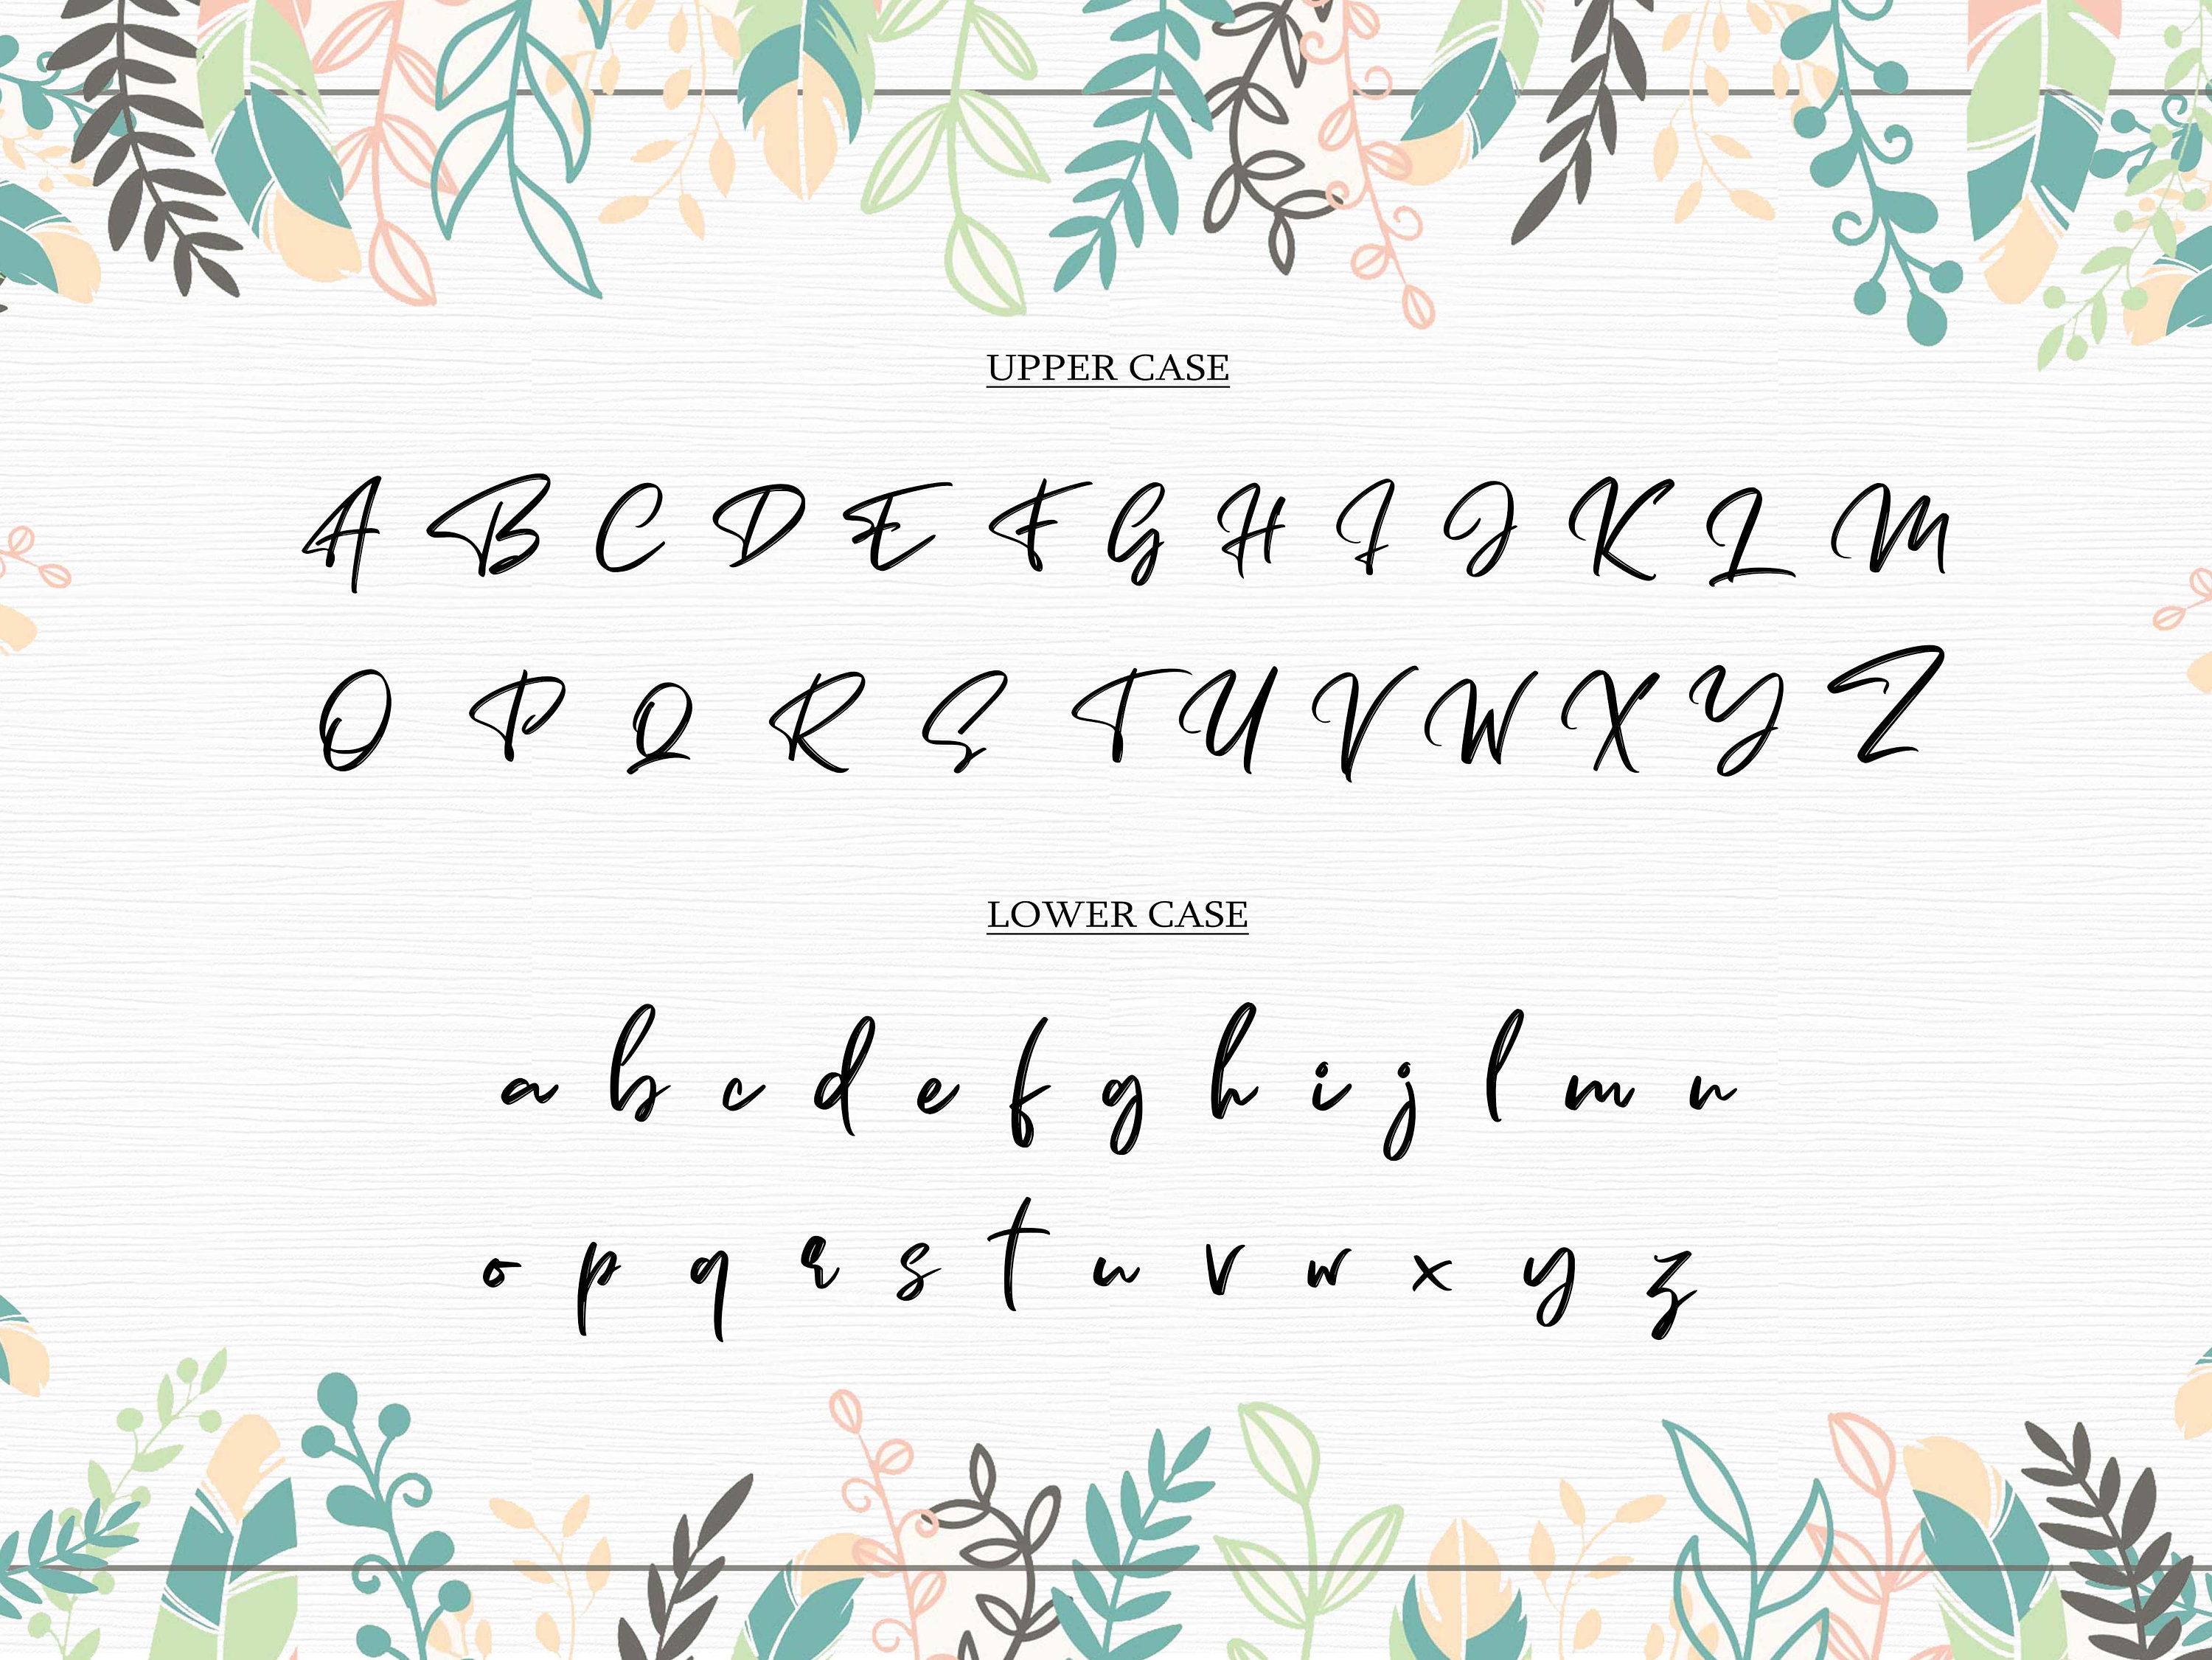 UPPER CASE
A B C D E F G H I J K L M
O P Q R S T U V W X Y Z
LOWER CASE
a b c d e f g h i j l m n
o p q r s t u v w x y z